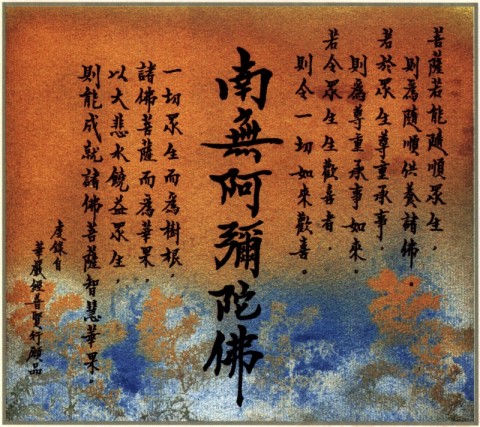 菩薩若能隨順眾生，
則為隨順供養諸佛．
若於眾生尊重承事．
則為尊重承事如來．
若令眾生生歡喜者．
則令一切如來歡喜。
南無阿彌陀佛
一切眾生而為樹根，
諸佛菩薩而為華果，
以大悲水饒益眾生，
則能成就諸佛菩薩智慧華果。
虔錄自
華嚴經普賢行願品